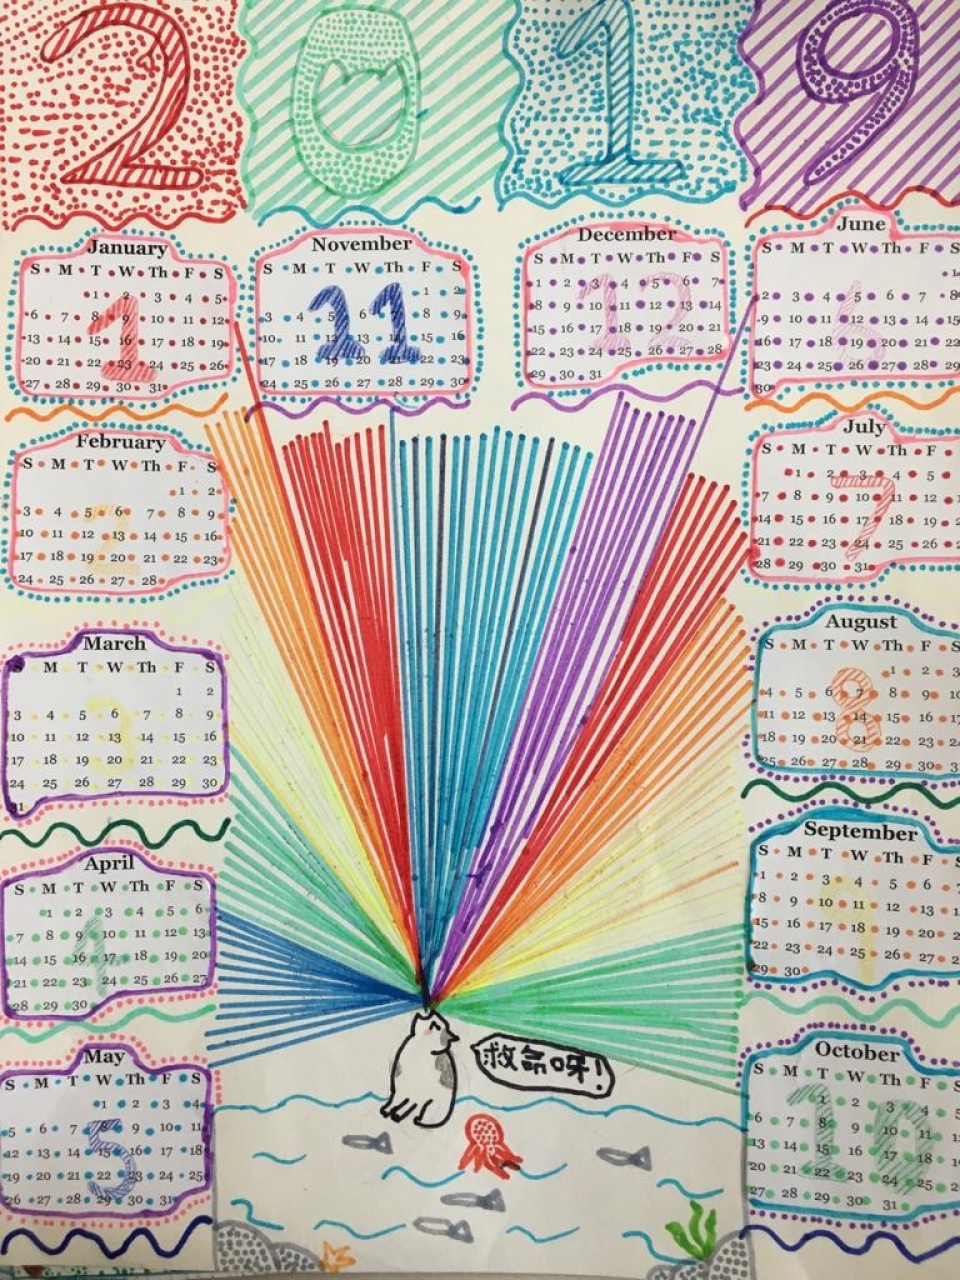 2019
January
S M T W Th F S
1 2 3 4 5
6 7 8 9 10 11 12
13 14 15 16 17 18 19
20 21 22 23 24 25 26
27 28 29 30 31
1
November
S M T W Th F S
1 2
3 4 5 6 7 8 9
10 11 12 13 14 15 16
17 18 19 20 21 22 23
24 25 26 27 28 29 30
11
December
S M T W Th F S
1 2 3 4 5 6 7
8 9 10 11 12 13 14
15 16 17 18 19 20 21
22 23 24 25 26 27 28
29 30 31
12
June
S M T W Th F S
1
2 3 4 5 6 7 8
9 10 11 12 13 14 15
16 17 18 19 20 21 22
23 24 25 26 27 28 29
30
6
February
S M T W Th F S
1 2
3 4 5 6 7 8 9
10 11 12 13 14 15 16
17 18 19 20 21 22 23
24 25 26 27 28
2
July
S M T W Th F S
1 2 3 4 5
7 8 9 10 11 12
14 15 16 17 18 19
21 22 23 24 25 26
28 29 30 31
7
March
S M T W Th F S
1 2
3 4 5 6 7 8 9
10 11 12 13 14 15 16
17 18 19 20 21 22 23
24 25 26 27 28 29 30
31
3
August
S M T W Th F S
1 2 3
4 5 6 7 8 9 10
11 12 13 14 15 16 17
18 19 20 21 22 23 24
25 26 27 28 29 30 31
8
April
S M T W Th F S
1 2 3 4 5 6
7 8 9 10 11 12 13
14 15 16 17 18 19 20
21 22 23 24 25 26 27
28 29 30
September
S M T W Th F S
1 2 3 4 5 6 7
8 9 10 11 12 13
15 16 17 18 19 20
22 23 24 25 26 27
29 30
9
May
S M T W Th F S
1 2 3 4
5 6 7 8 9 10 11
12 13 14 15 16 17 18
19 20 21 22 23 24 25
26 27 28 29 30 31
5
救命呀!
October
S M T W Th F S
1 2 3 4 5
6 7 8 9 10 11
13 14 15 16 17 18
20 21 22 23 24 25
27 28 29 30 31
10